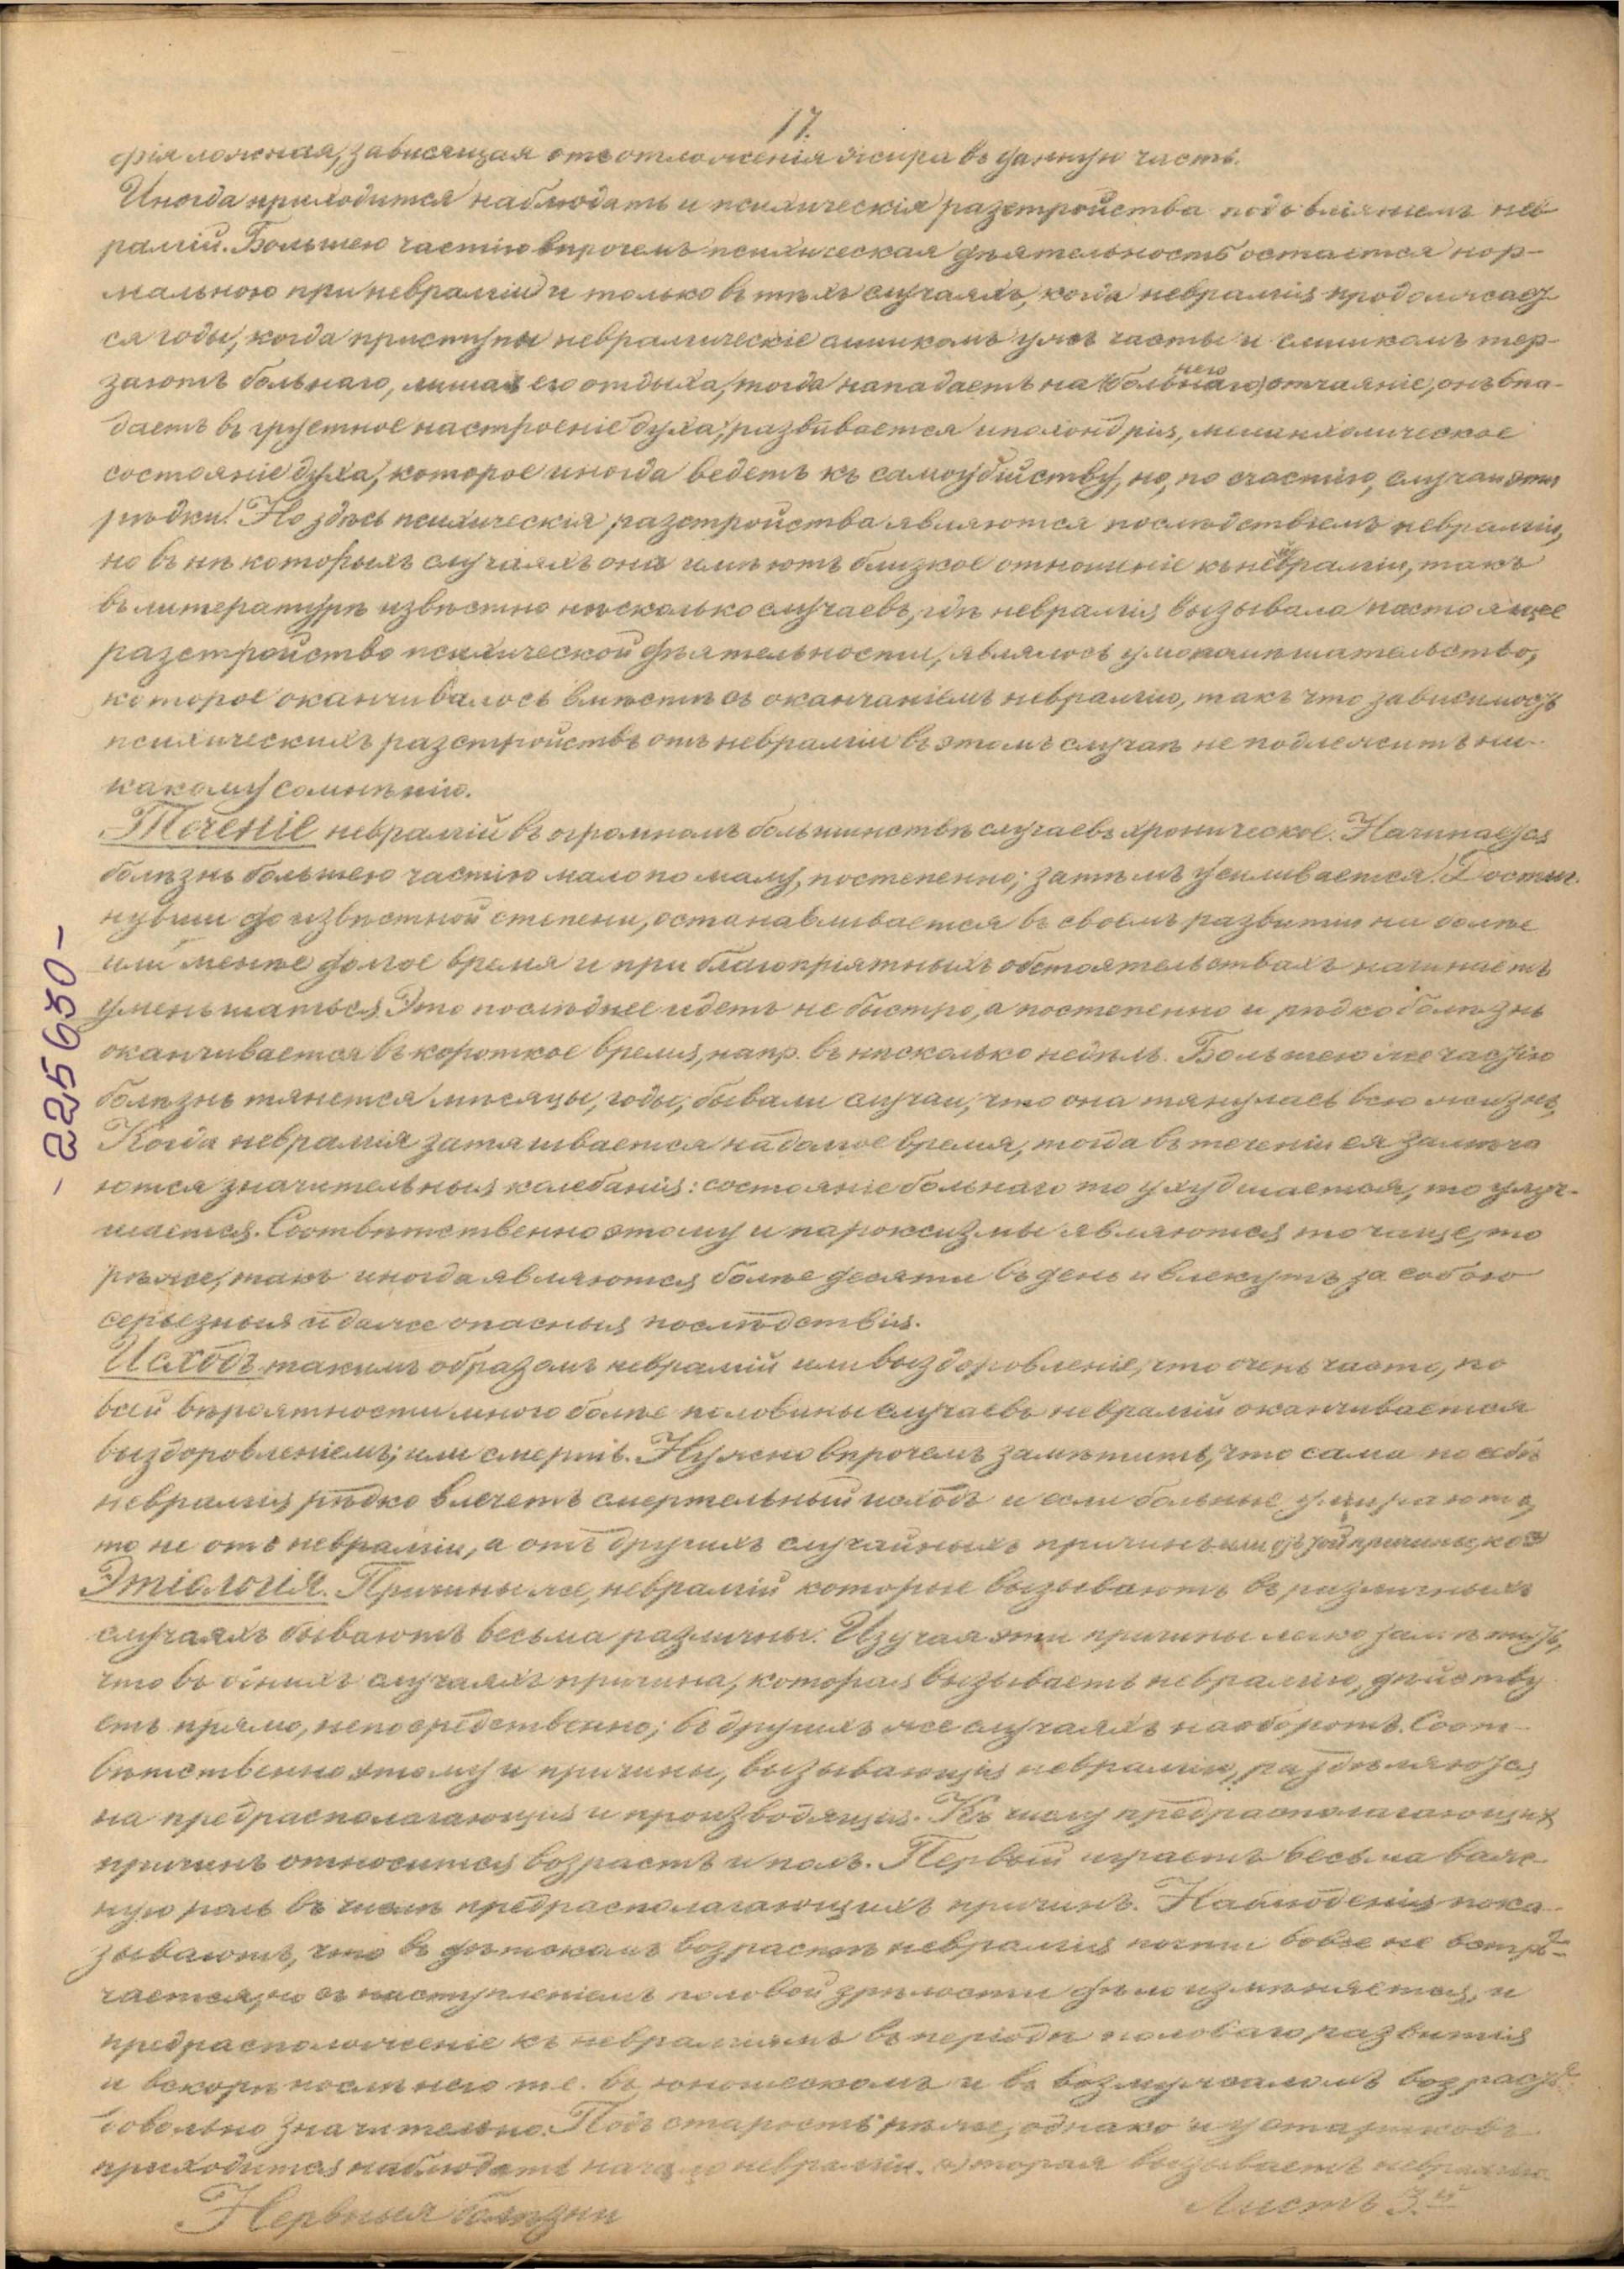 17.
фія ложная, зависящая отъ отложенія жира въ данную часть.
Иногда приходится наблюдать и психическія разстройства подъ вліяніемъ нев
ралгій. Большею частію впрочемъ психическая дѣятельность остается нор-
мальною при невралгіи и только въ тѣхъ случаяхъ, когда невралгія продолжает
ся годы, когда приступы невралгическіе слишкомъ ужъ часты и слишкомъ тер-
заютъ больнаго, лишая его отдыха, тогда нападаетъ на него отчаяніе, онъ впа-
даетъ въ грустное настроеніе духа, развивается ипохондрія, меланхолическое
состояніе духа, которое иногда ведетъ къ самоубійству, но, по счастію, случаи эти
рѣдки. Но здѣсь психическія разстройства являются послѣдствіемъ невралгіи,
но въ нѣкоторыхъ случаяхъ они имѣютъ близкое отношеніе къ невралгіи, такъ
въ литературѣ извѣстно нѣсколько случаевъ, гдѣ невралгія вызывала настоящее
разстройство психической дѣятельности, являлось умопомѣшательство,
которое оканчивалось вмѣстѣ съ окончаніемъ невралгіи, такъ что зависимость
психическихъ разстройствъ отъ невралгіи въ этомъ случаѣ не подлежитъ ни-
какому сомнѣнію.
Теченіе невралгій въ огромномъ большинствѣ случаевъ хроническое. Начинается
болѣзнь большею частію мало по малу, постепенно; затѣмъ усиливается. Достиг-
нувши до извѣстной степени, останавливается въ своемъ развитіи на болѣе
или менѣе долгое время и при благопріятныхъ обстоятельствахъ начинаетъ
уменьшаться. Это послѣднее идетъ не быстро, а постепенно и рѣдко болѣзнь
оканчивается въ короткое время, напр. въ нѣсколько недѣль. Большею же частію
болѣзнь тянется мѣсяцы, годы, бывали случаи, что она тянулась всю жизнь.
Когда невралгія затягивается на долгое время, тогда въ теченіи ея замѣча
ются значительныя колебанія: состояніе больнаго то ухудшается, то улуч-
шается. Соотвѣтственно этому и пароксизмы являются то чаще, то
рѣже, такъ иногда являются болѣе десяти въ день и влекутъ за собою
серьезныя и даже опасныя послѣдствія.
Исходъ такимъ образомъ невралгій или выздоровленіе, что очень часто, по
всей вѣроятности много болѣе половины случаевъ невралгій оканчивается
выздоровленіемъ; или смерть. Нужно впрочемъ замѣтить, что сама по себѣ
невралгія рѣдко влечетъ смертельный исходъ и если больные умираютъ,
то не отъ невралгіи, а отъ другихъ случайныхъ причинъ или отъ той причины, ко-
Этіологія. Причины же, невралгій которые вызываютъ въ различныхъ
случаяхъ бываютъ весьма различны. Изучая эти причины легко замѣтить,
что въ однихъ случаяхъ причина, которая вызываетъ невралгію, дѣйству
етъ прямо, непосредственно; въ другихъ же случаяхъ наоборотъ. Соот-
вѣтственно этому и причины, вызывающія невралгію, раздѣляются
на предрасполагающія и производящія. Къ числу предрасполагающихъ
причинъ относится возрастъ и полъ. Первый играетъ весьма важ-
ную роль въ числѣ предрасполагающихъ причинъ. Наблюденія пока-
зываютъ, что въ дѣтскомъ возрастѣ невралгія почти вовсе не встрѣ-
чается, но съ наступленіемъ половой зрѣлости дѣло измѣняется, и
предрасположеніе къ невралгіямъ въ періодъ половаго развитія
и вскорѣ послѣ него т.е. въ юношескомъ и въ возмужаломъ возрастѣ
довольно значительно. Подъ старость рѣже, однако и у стариковъ
приходится наблюдать начало невралгіи. которая вызываетъ невралгію.
Нервныя болѣзни
Листъ 3й
- 225650 -